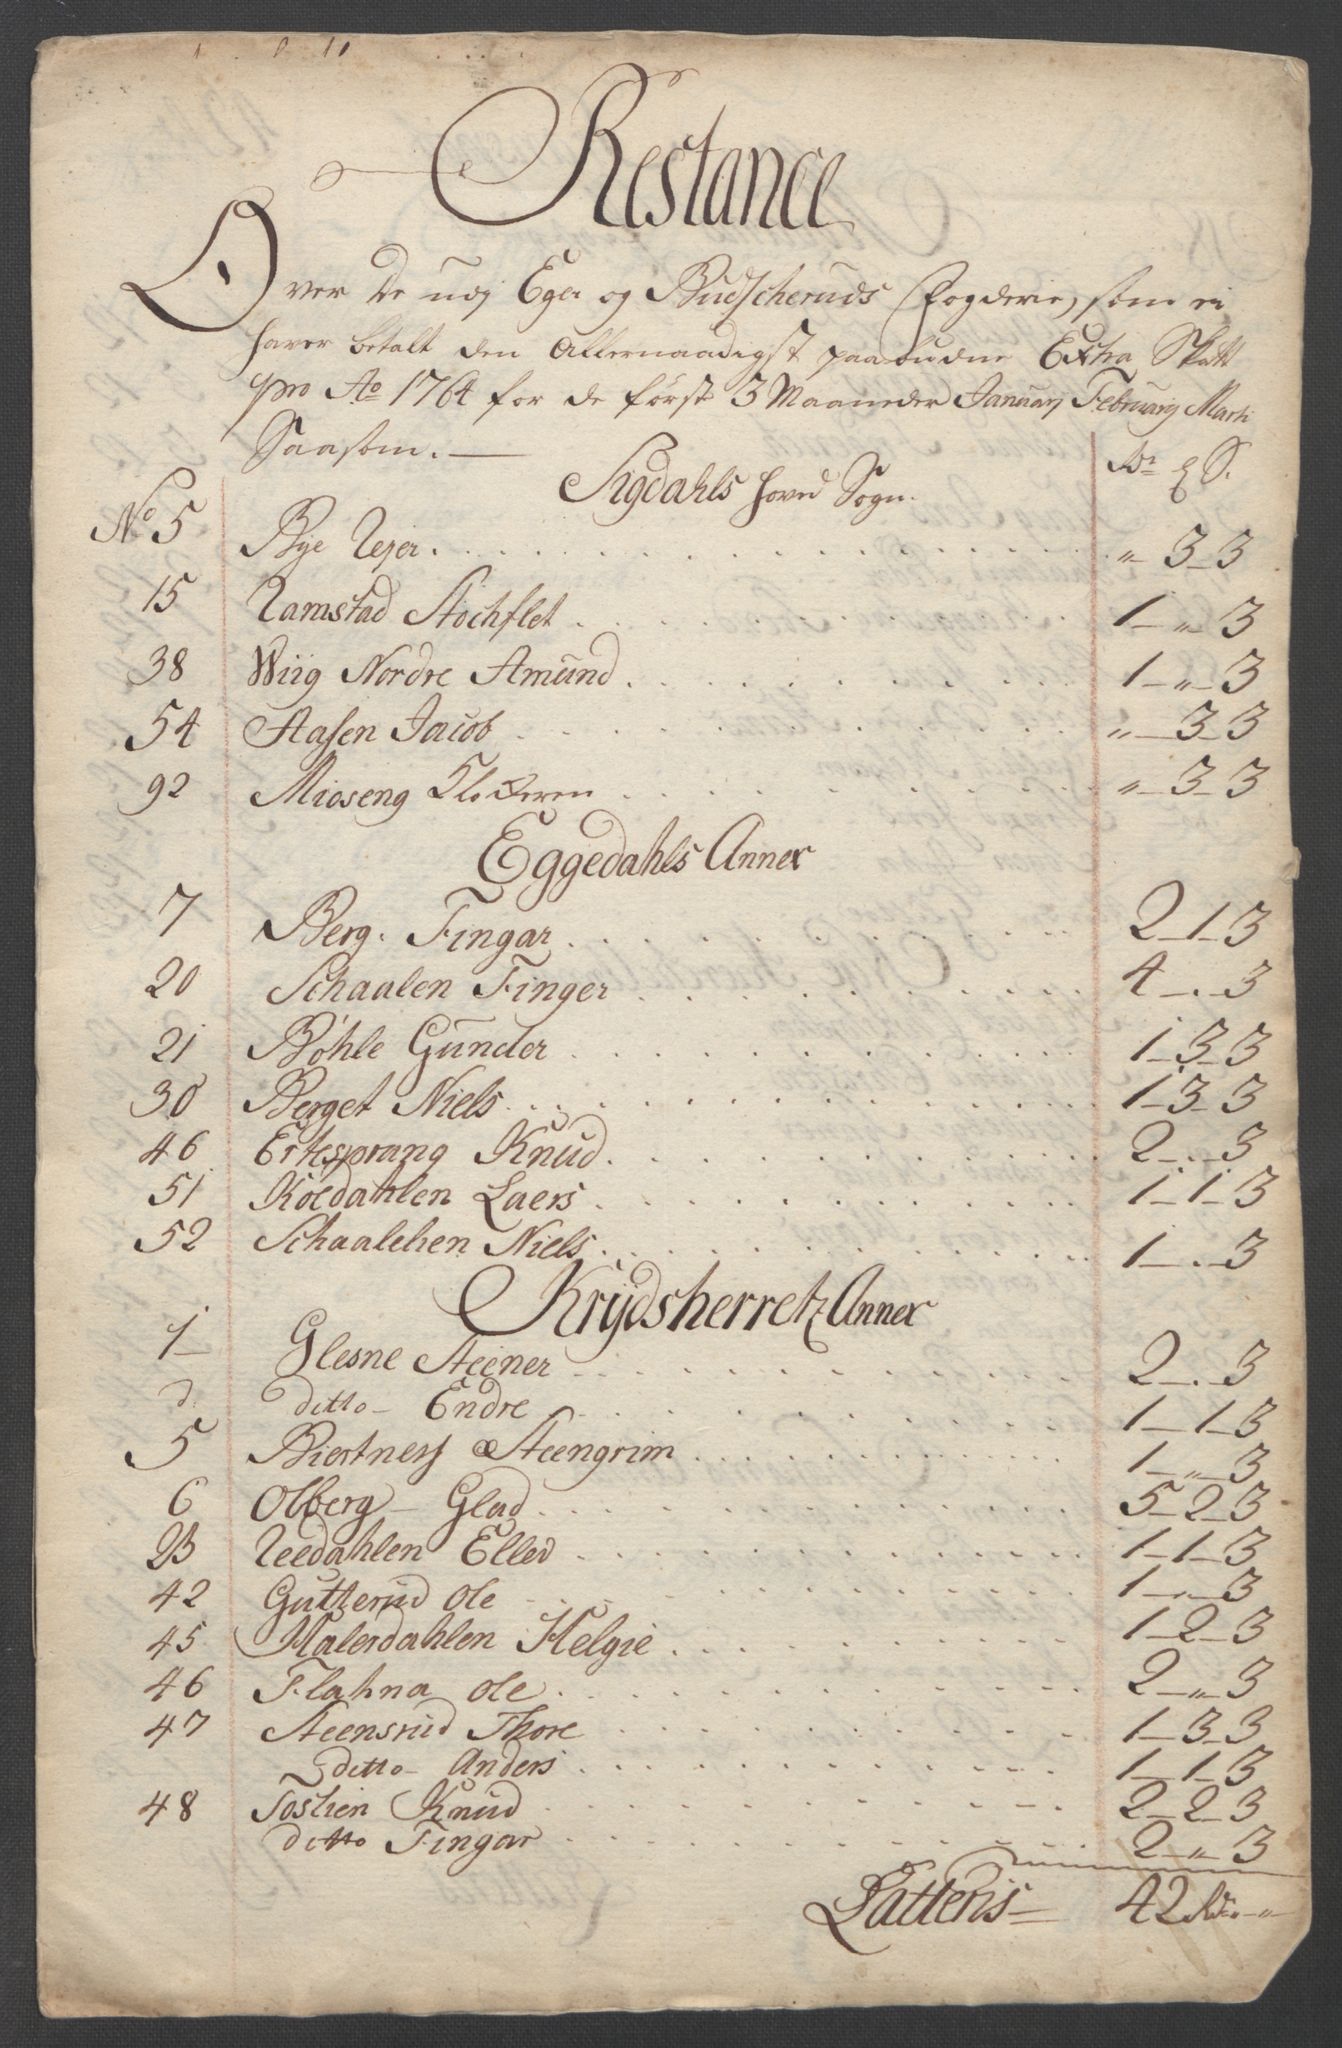 Restance
Over de udj Eger og Budscheruds Fogderie, som ei
haver betalt den Allernaadigst paabudne Extra Skatt
pro Ao 1764 for de først 3 Maaneder Januarj Februarij Marti
Saasom. —
Sigdahls Hoved Sogn. Rdr S.
No 5 Bye Rejer. „ 3 3
15 Ramstad Stochflet 1 „ 3
38 Wiig Nordre Amund 1 „ 3
54 Aasen Jacob „ 3 3
92 Mioseng Klockeren „ 3 3
Eggedahls Annex
7 Berg. Fingar 2 1 3
20 Schaalen Finger 4 . 3
21 Bøhle Gunder 1 3 3
30 Berget Niels 1 3 3
46 Ertesprang Knud 2 . 3
51 Koldahlen Laers 1 1 3
52 Schaalehen Niels 1 . 3
Krydsherretz Annex
1 Glesne Steener 2 . 3
d. ditto Endre 1 1 3
5 Biertness Steengrim 1 „ 3
6 Olberg Glad 5 2 3
23 Reedahlen Ellev 1 1 3
42 Gutterud Ole 1 „ 3
45 Malerdahlen Helgie 1 2 3
46 Flahna Ole 2 „ 3
47 Steensrud Thore 1 3 3
ditto Anders 1 1 3
48 Toslien Knud 2 2 3
ditto Fingar 2 „ 3
Latteris 42 Rdr „ „